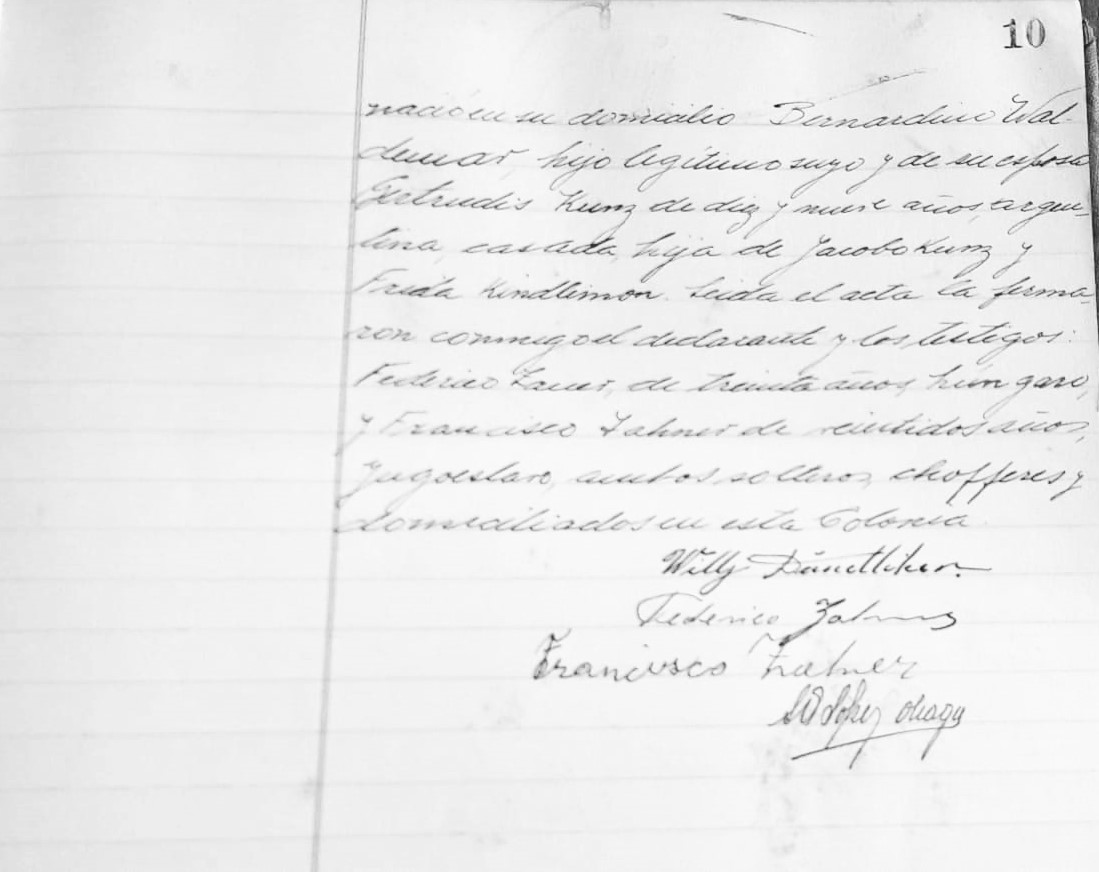 10
nació en su domicilio Bernardino Wal-
demar, hijo legítimo suyo y de su esposa
Gertrudis Kunz de diez y nueve años, argen-
tina, casada, hija de Jacobo Kunz y
Frida Kindlimon. Leida el acta la firma-
ron conmigo el declarante y los testigos:
Federico Zaner, de treinta años, húngaro,
y Francisco Zahner de veintidos años,
yugoeslavo, ambos solteros, choferes y
domiciliados en esta Colonia
Willy
Federico
Francisco Zahner